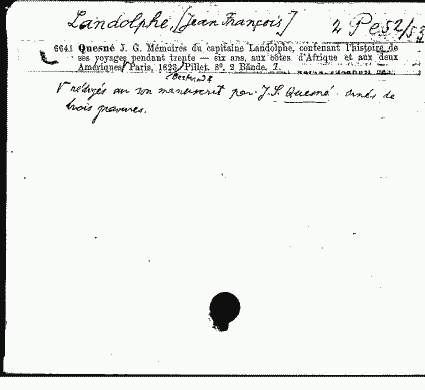 Landolphe, [Jean François] 2 Pe 52/53
6641 Quesné J. G. Mémoires du capitaine Landolphe, contenant l'histoire de
ses voyages pendant trente — six ans, aux côtes d'Afrique et aux deux
Amériques Paris, 1823, Pillet. 8°. 2 Bände. 7.
rédigés sur son manuscrit par J. S. Quesné ornés de
trois gravures.